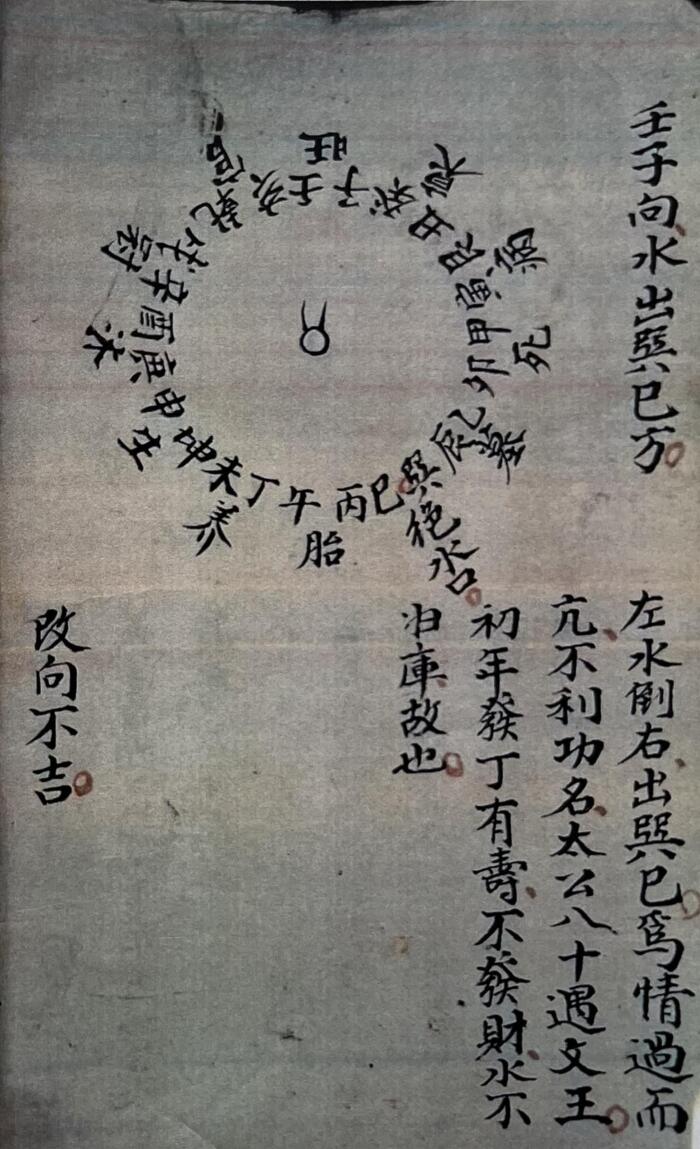 壬子向水出巽巳方
左水倒右出巽巳爲情過而
亢不利功名太公八十遇文王
初年發丁有壽不發財水不
归庫故也
改向不吉
壬子癸丑艮寅甲卯乙辰巽巳丙午丁未坤申庚酉辛戌乾亥
旺
衰
病
死
墓
絶水口
胎
养
生
沐
冠
官